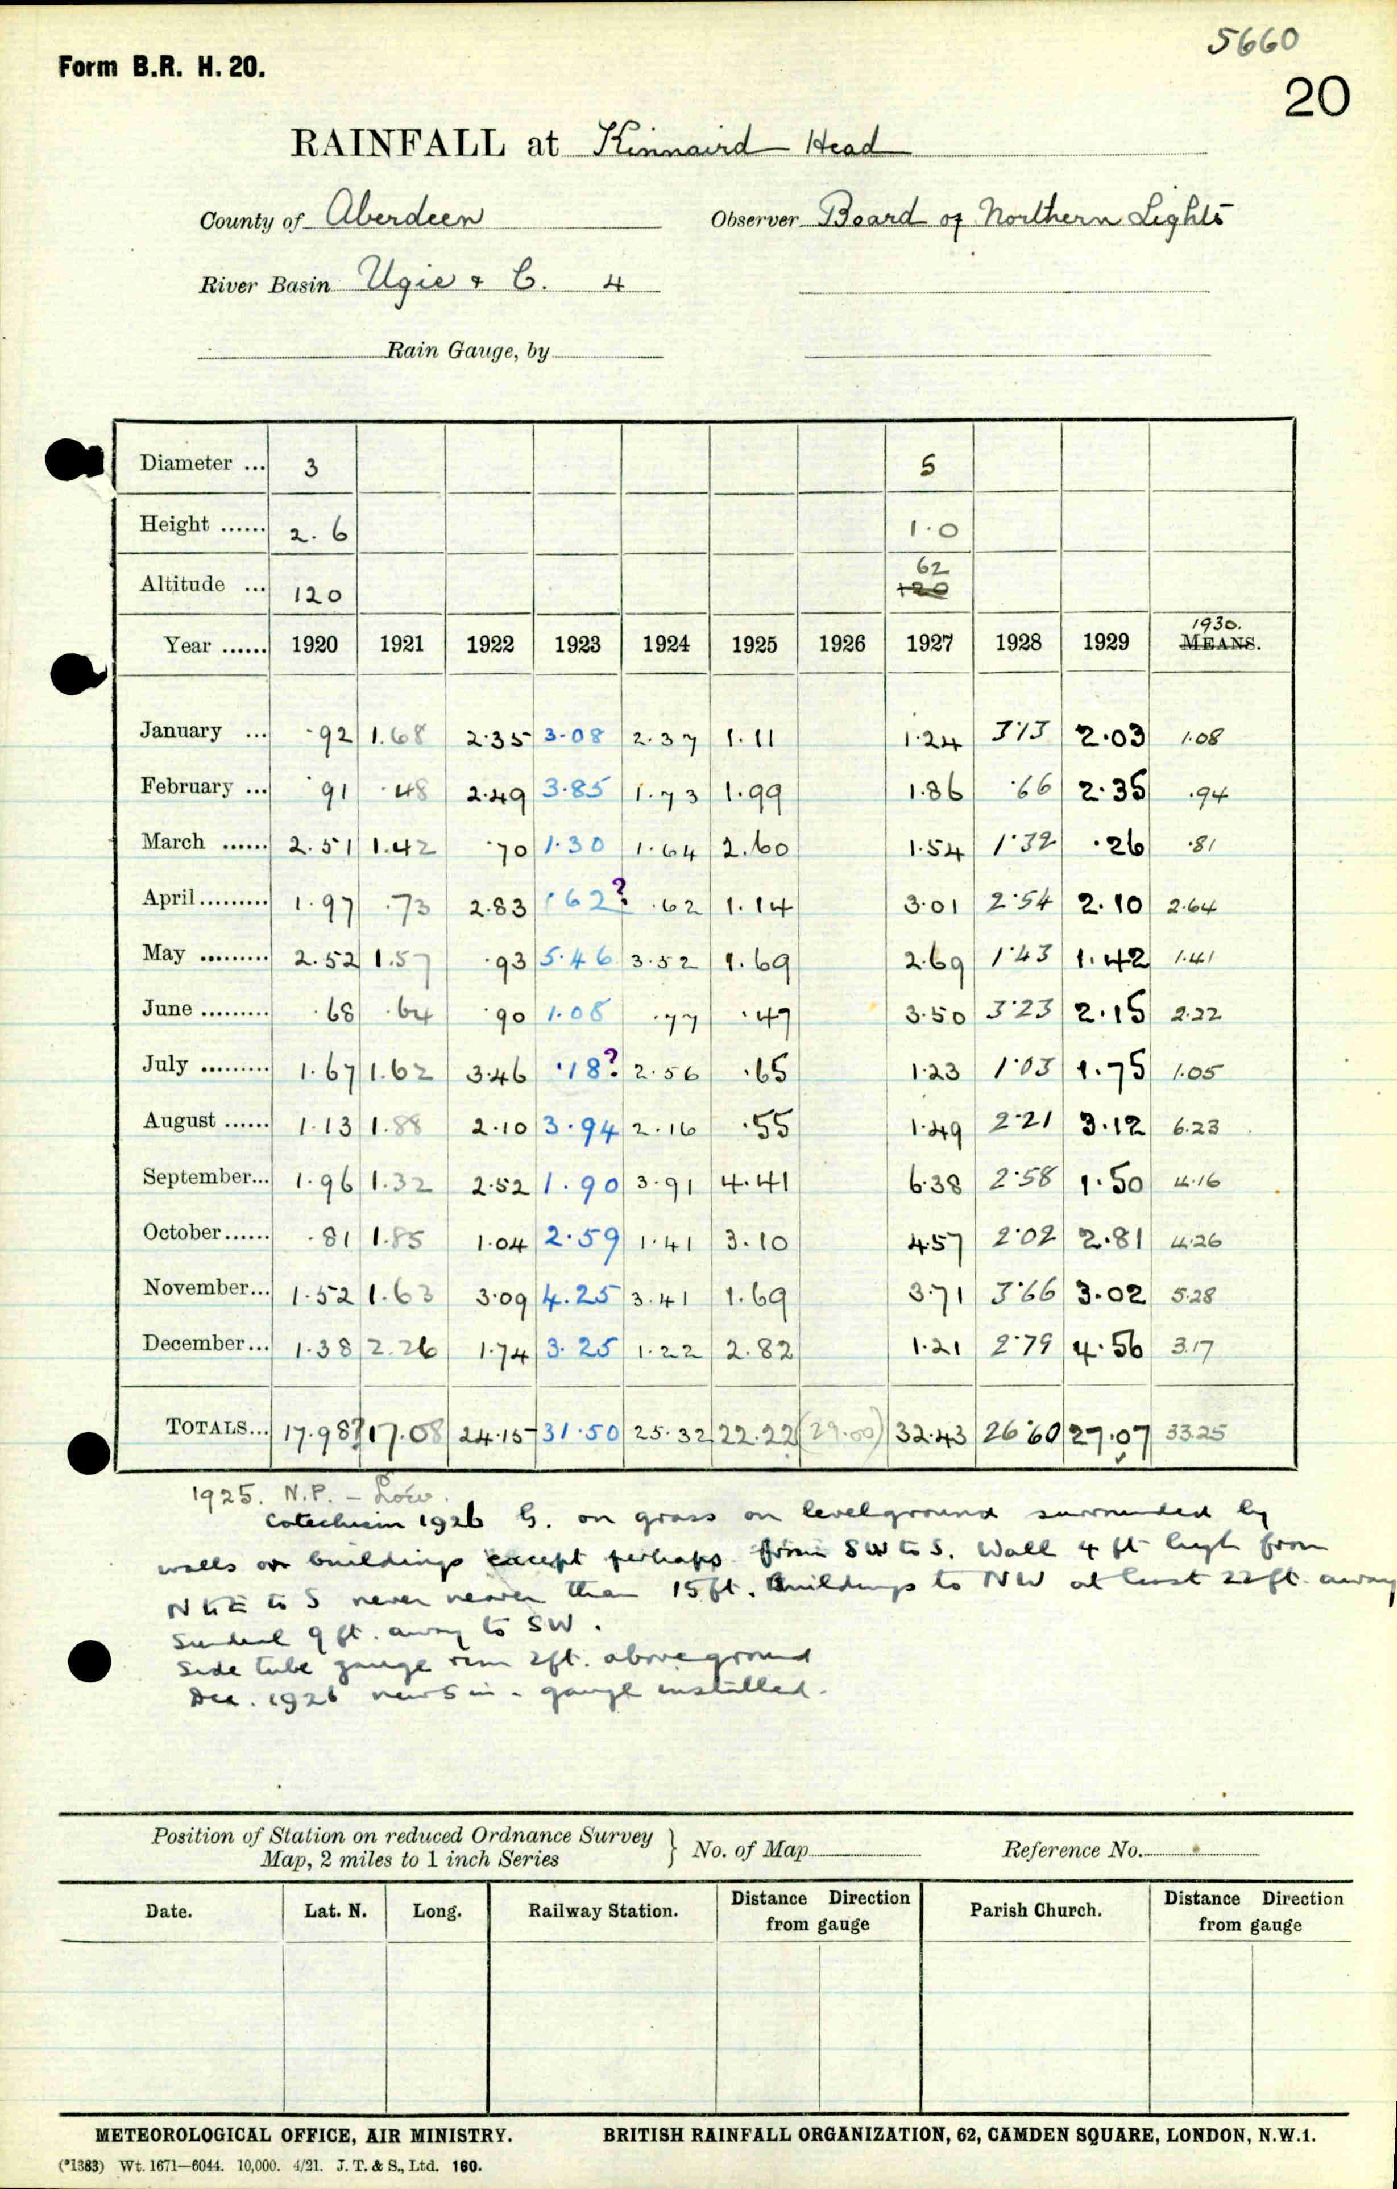 5660
Form B.R. H. 20.
20
RAINFALL at Kinnaird Head
County of Aberdeen Observer Board of Northern Lights
River Basin Ugie & C. 4
Rain Gauge, by
Diameter ... 3 5
Height ...... 2.6 1.0
62
Altitude ... 120 120
1930.
Year ...... 1920 1921 1922 1923 1924 1925 1926 1927 1928 1929 MEANS.
January ... .92 1.68 2.35 3.08 2.37 1.11 1.24 3.13 2.03 1.08
February ... .91 .48 2.49 3.85 1.73 1.99 1.86 .66 2.35 .94
March ...... 2.51 1.42 .70 1.30 1.64 2.60 1.54 1.32 .26 .81
April ......... 1.97 .73 2.83 .62? .62 1.14 3.01 2.54 2.10 2.64
May ......... 2.52 1.57 .93 5.46 3.52 1.69 2.69 1.43 1.42 1.41
June ......... .68 .64 .90 1.08 .77 .47 3.50 3.23 2.15 2.22
July ......... 1.67 1.62 3.46 .18? 2.56 .65 1.23 1.03 1.75 1.05
August ...... 1.13 1.88 2.10 3.94 2.16 .55 1.49 2.21 3.12 6.23
September... 1.96 1.32 2.52 1.90 3.91 4.41 6.38 2.58 1.50 4.16
October...... .81 1.85 1.04 2.59 1.41 3.10 4.57 2.02 2.81 4.26
November... 1.52 1.63 3.09 4.25 3.41 1.69 3.71 3.66 3.02 5.28
December... 1.38 2.26 1.74 3.25 1.22 2.82 1.21 2.79 4.56 3.17
TOTALS... 17.98? 17.08 24.15 31.50 25.32 22.22 (29.00) 32.43 26.60 27.07 33.25
1925. N.P. - Low.
Catechism 1926 G. on grass on level ground surrounded by
walls or buildings except perhaps from SW to S. Wall 4 ft high from
N to E to S never nearer than 15 ft. Buildings to NW at least 22 ft. away
Sundial 9 ft. away to SW.
Side tube gauge rim 2ft. above ground
Dec. 1926 new 5 in. gauge installed.
Position of Station on reduced Ordnance Survey
Map, 2 miles to 1 inch Series } No. of Map Reference No.
Date. Lat. N. Long. Railway Station. Distance Direction from gauge Parish Church. Distance Direction from gauge
METEOROLOGICAL OFFICE, AIR MINISTRY. BRITISH RAINFALL ORGANIZATION, 62, CAMDEN SQUARE, LONDON, N.W.1.
(*1383) Wt. 1671—6044. 10,000. 4/21. J. T. & S., Ltd. 160.